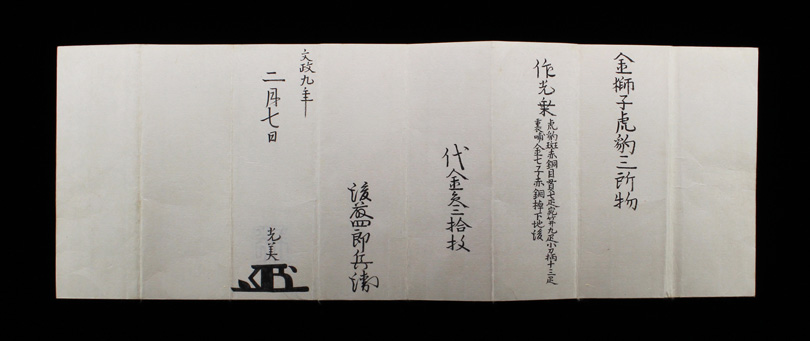 金獅子虎豹三所物
作光乗
虎豹斑赤銅目貫七疋宛笄九疋小刀柄十三疋
裏哺金七子赤銅棹下地後
代金参拾枚
後藤四郎兵衛
文政九年
二月七日
光美